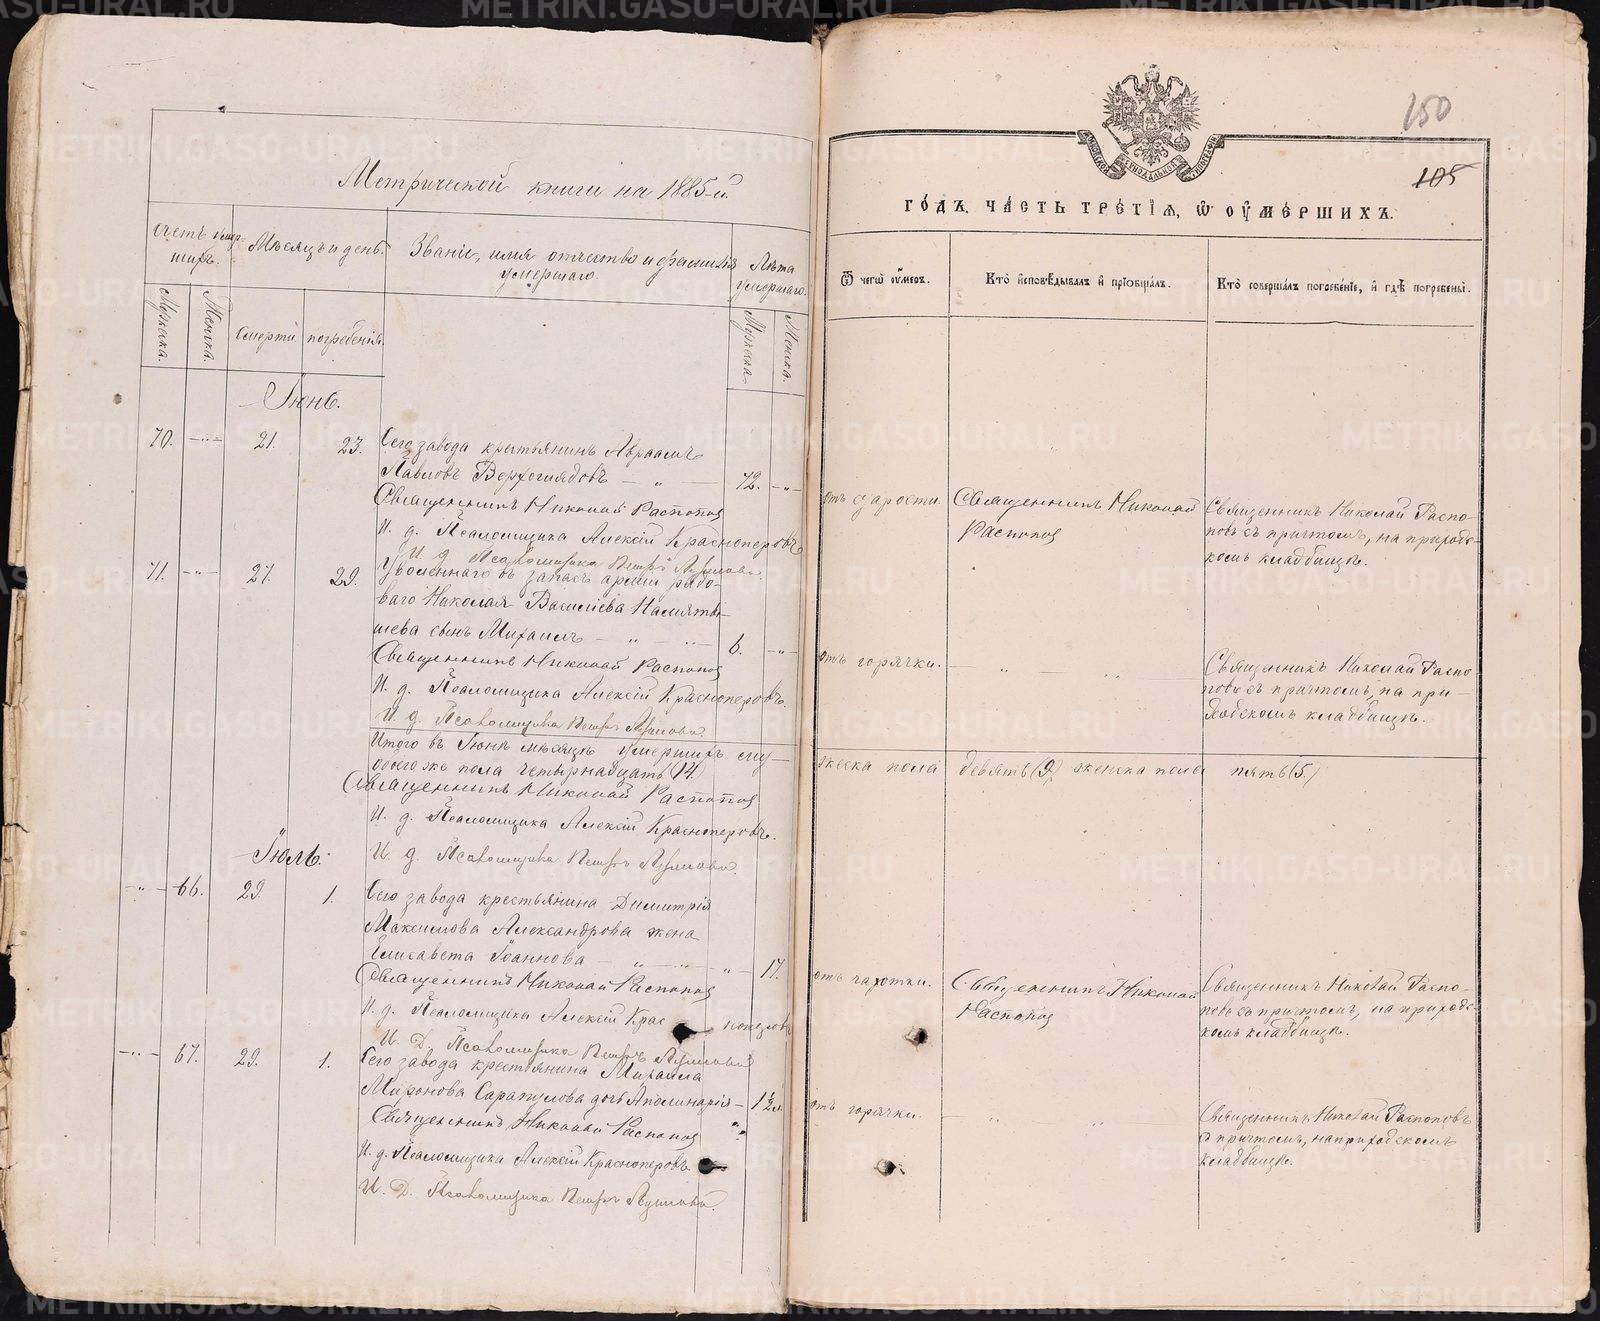 METRIKI.GASO-URAL.RU
Метрической книги на 1885-й
Счетъ умер-
шихъ.
Мѣсяцъ и день.
Званіе, имя отчество и фамилія
умершаго.
Лѣта
умершаго.
Мужеска.
Женска.
Смерти
погребенія.
Мужеска
Женска.
Іюнь.
70. 21. 23. Сего завода крестьянинъ Авраамъ
Павловъ Верхоглядовъ 72.
Священникъ Николай Распопов
И. д. Псаломщика Алексій Красноперовъ
И. д. Псаломщика Петръ
71. 27. 29. Уволеннаго въ запасъ арміи рядо-
ваго Николая Василіева
шева сынъ Михаилъ 6.
Священникъ Николай Распопов
И. д. Псаломщика Алексій Красноперовъ.
И. д. Псаломщика Петръ
Итого въ Іюнѣ мѣсяцѣ умершихъ му-
обоего же пола четырнадцать (14)
Священникъ Николай Распопов
И. д. Псаломщика Алексій Красноперовъ.
И. д. Псаломщика Петръ
Іюль.
66. 29. 1. Сего завода крестьянина Димитрія
Максимова Александрова жена
Елисавета Іоаннова 17.
Священникъ Николай Распопов
И. д. Псаломщика Алексій Крас ноперовъ
И. Д. Псаломщика Петръ
67. 29. 1. Сего завода крестьянина Михаила
Миронова Сарапулова дочь Аполинарія 1½ л.
Священникъ Николай Распопов
И. д. Псаломщика Алексій Красноперовъ.
И. Д. Псаломщика Петръ
150
105
ГОДЪ, ЧАСТЬ ТРЕТІЯ, Ѿ ОУМЕРШИХЪ.
Ѿ чегѡ оумеръ.
Кто исповѣдывалъ и пріобщалъ.
Кто совершалъ погребеніе, и гдѣ погребены.
отъ старости.
Священникъ Николай
Распопов
Священникъ Николай Распо-
повъ съ причтомъ, на приход-
скомъ кладбищѣ.
отъ горячки.
Священникъ Николай Распо
повъ съ причтомъ, на при-
ходскомъ кладбищѣ.
жеска пола девять (9) женска пола пять (5.)
отъ чахотки.
Священникъ Николай
Распопов
Священникъ Николай Распо-
повъ съ причтомъ, на приход-
скомъ кладбищѣ.
отъ горячки.
Священникъ Николай Распоповъ
съ причтомъ, на приходскомъ
кладбищѣ.